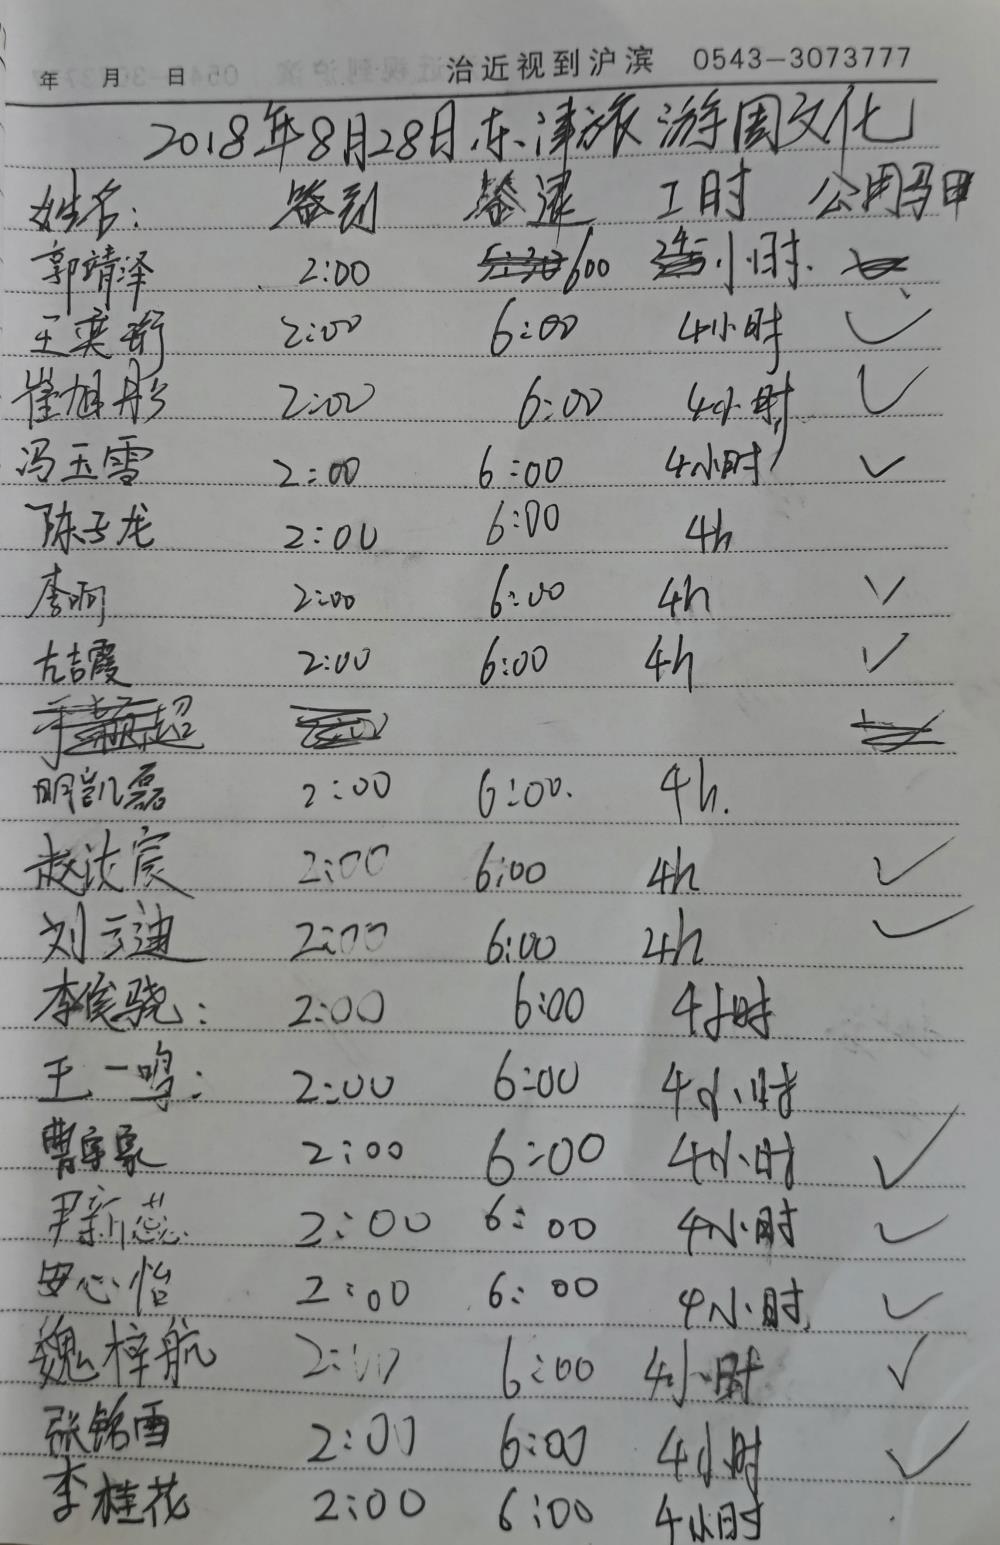 年 月 日 治近视到沪滨 0543-3073777
2018年8月28日东津旅游周文化
姓名: 签到 签退 工时 公用马甲
郭靖泽 2:00 600 4小时.
王奕 2:00 6:00 4小时 ✓
崔旭彤 2:00 6:00 4小时 ✓
冯玉雪 2:00 6:00 4小时 ✓
陈子龙 2:00 6:00 4h
李响 2:00 6:00 4h ✓
左吉霞 2:00 6:00 4h ✓
明凯磊 2:00 6:00. 4h.
赵法宸 2:00 6:00 4h ✓
刘云迪 2:00 6:00 4h ✓
李俊骁: 2:00 6:00 4小时
王一鸣: 2:00 6:00 4小时
曹宇豪 2:00 6:00 4小时 ✓
尹新蕊 2:00 6:00 4小时 ✓
安心怡 2:00 6:00 4小时 ✓
魏梓航 2:00 6:00 4小时 ✓
张铭雪 2:00 6:00 4小时 ✓
李桂花 2:00 6:00 4小时